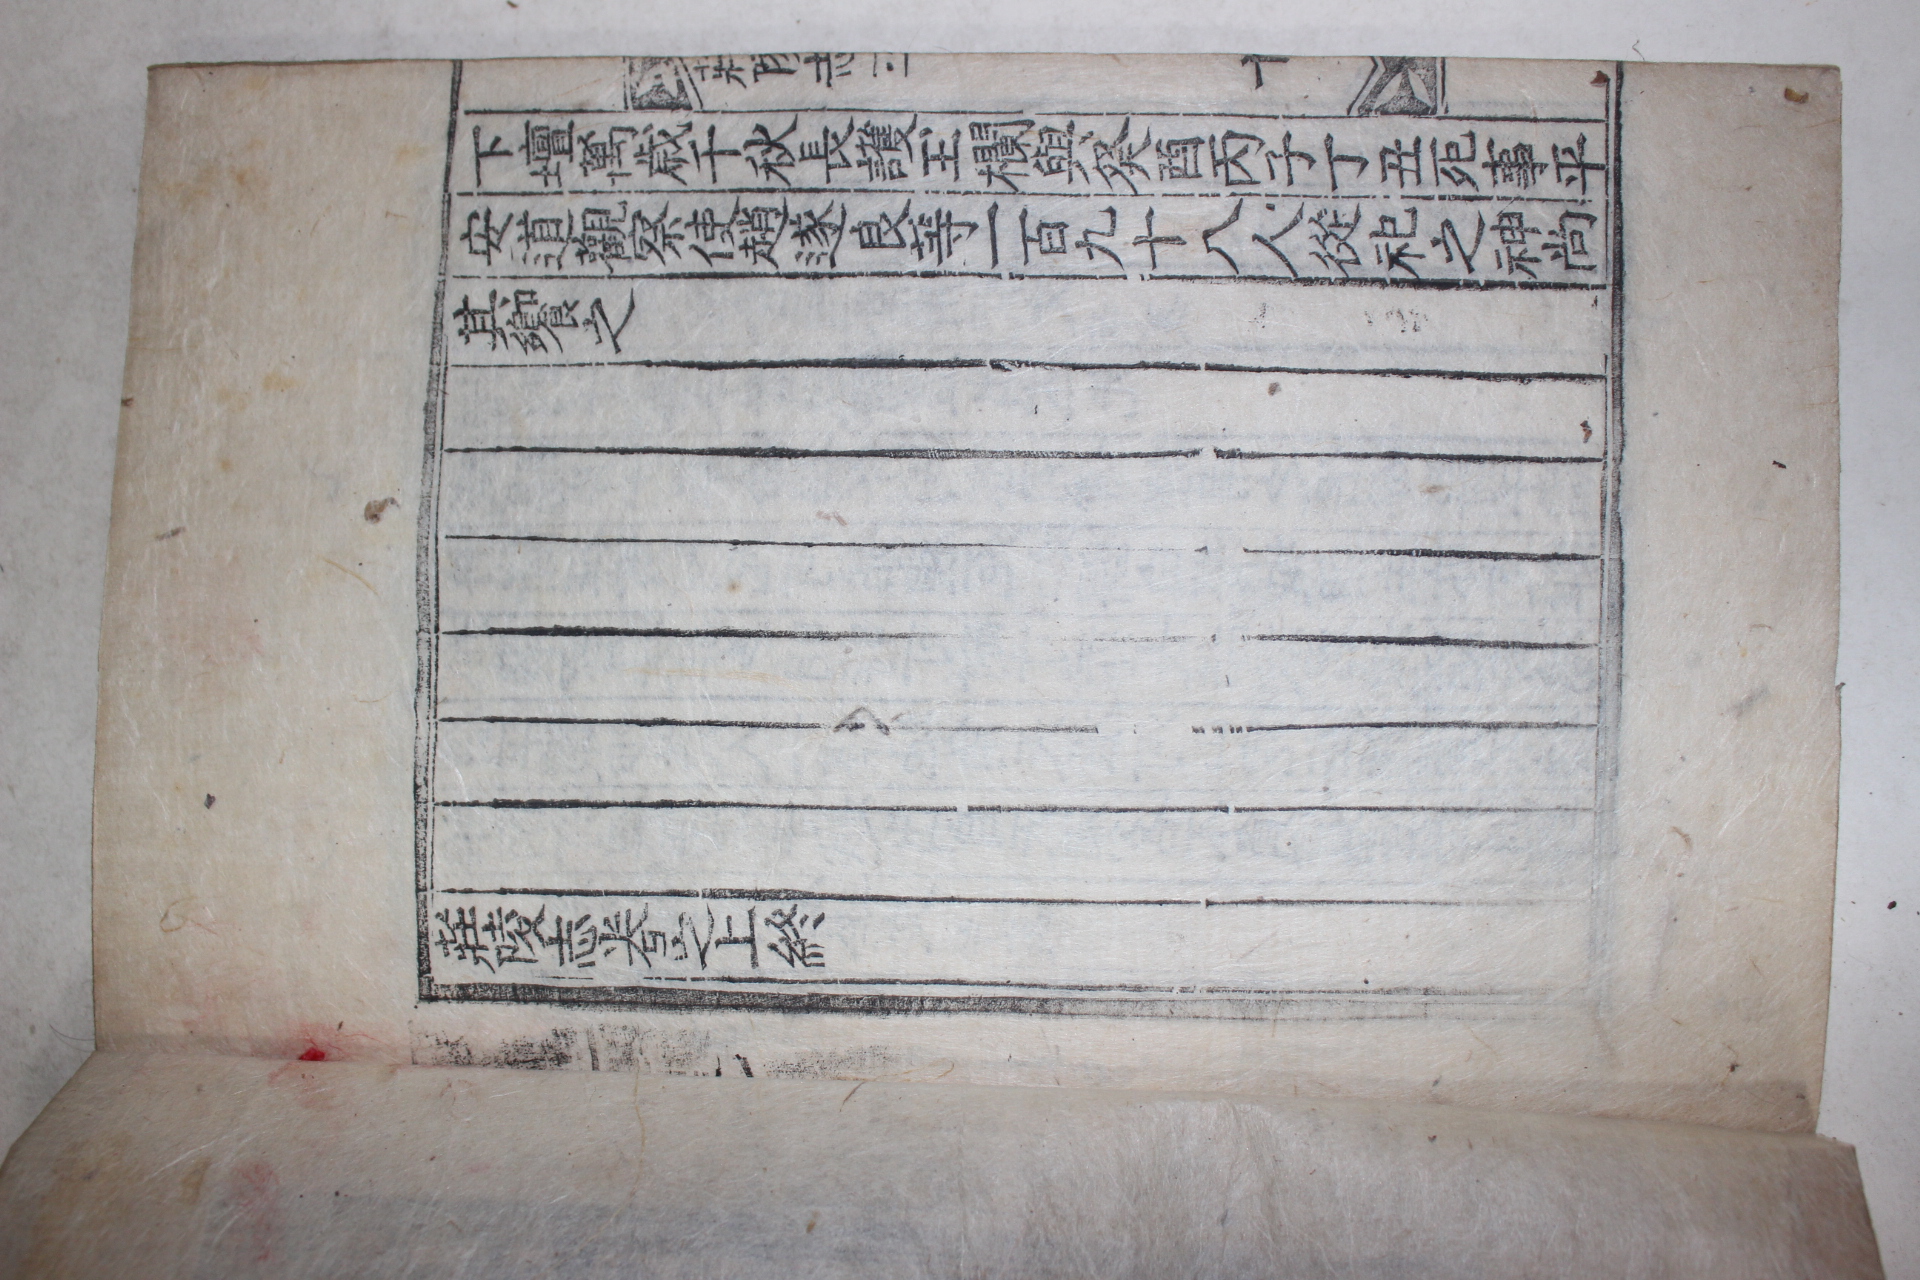 莊陵志
下壇萬歲千秋長護玉欄與癸酉丙子丁丑死事平
安道觀察使趙遂良等一百九十八人從祀之神尙
其饗之
莊陵志卷之上終